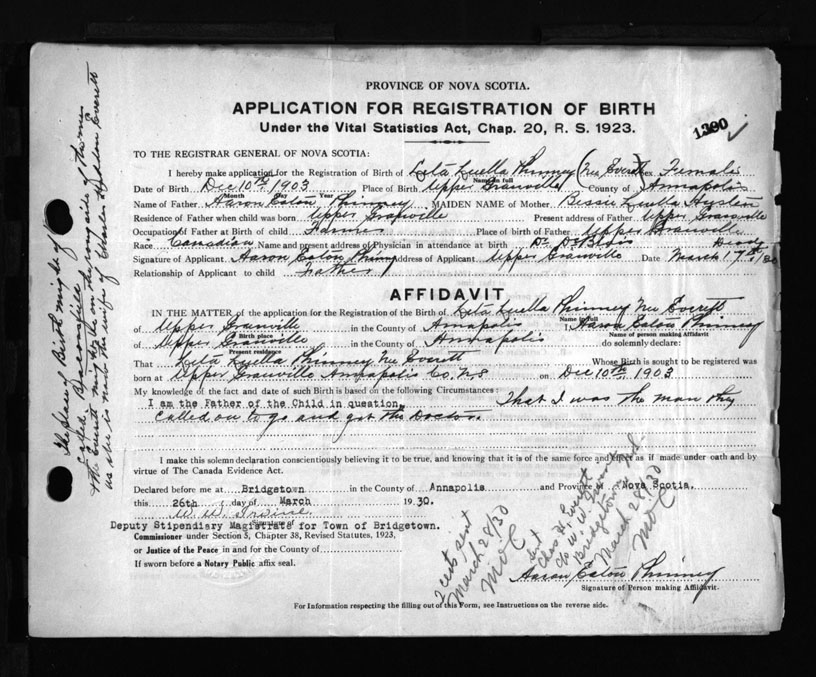 PROVINCE OF NOVA SCOTIA.
APPLICATION FOR REGISTRATION OF BIRTH
Under the Vital Statistics Act, Chap. 20, R. S. 1923.
1390
TO THE REGISTRAR GENERAL OF NOVA SCOTIA:
I hereby make application for the Registration of Birth of Leta Luella Phinney (Nee Everett) Sex Female
Name in full
Date of Birth Dec 10th 1903 Place of Birth Upper Granville County of Annapolis
Month Day Year
Name of Father Aaron Eaton Phinney MAIDEN NAME of Mother Bessie Luella
Residence of Father when child was born Upper Granville Present address of Father Upper Granville
Occupation of Father at Birth of child Farmer Place of birth of Father Upper Granville
Race Canadian Name and present address of Physician in attendance at birth Dr DeBlois
Signature of Applicant Aaron Eaton Phinney Address of Applicant Upper Granville Date March 17th/30
Relationship of Applicant to child Father
AFFIDAVIT
IN THE MATTER of the application for the Registration of the Birth of Leta Luella Phinney Nee Everett
Name in full
of Upper Granville in the County of Annapolis I, Aaron Eaton Phinney
Birth place Name of person making Affidavit
of Upper Granville in the County of Annapolis do solemnly declare:
Present residence
That Leta Luella Phinney Nee Everett Whose Birth is sought to be registered was
born at Upper Granville Annapolis Co. N.S on Dec 10th 1903
My knowledge of the fact and date of such Birth is based on the following Circumstances:
I am the Father of the Child in question, That I was the man they
called on to go and get the Doctor.
I make this solemn declaration conscientiously believing it to be true, and knowing that it is of the same force and effect as if made under oath and by
virtue of The Canada Evidence Act.
Declared before me at Bridgetown in the County of Annapolis and Province of Nova Scotia.
this 26th day of March 1930.
Signature of
Deputy Stipendiary Magistrate for Town of Bridgetown.
Commissioner under Section 5, Chapter 38, Revised Statutes, 1923,
or Justice of the Peace in and for the County of
If sworn before a Notary Public affix seal.
Aaron Eaton Phinney
Signature of Person making Affidavit.
For Information respecting the filling out of this Form, see Instructions on the reverse side.
2 certs sent
March 28/30
MOC
Bridgetown N.S.
March 28/30
MOC
The place of Birth might be of
called
The Everett might be on the wrong side of the name
as she is now the wife of Everett